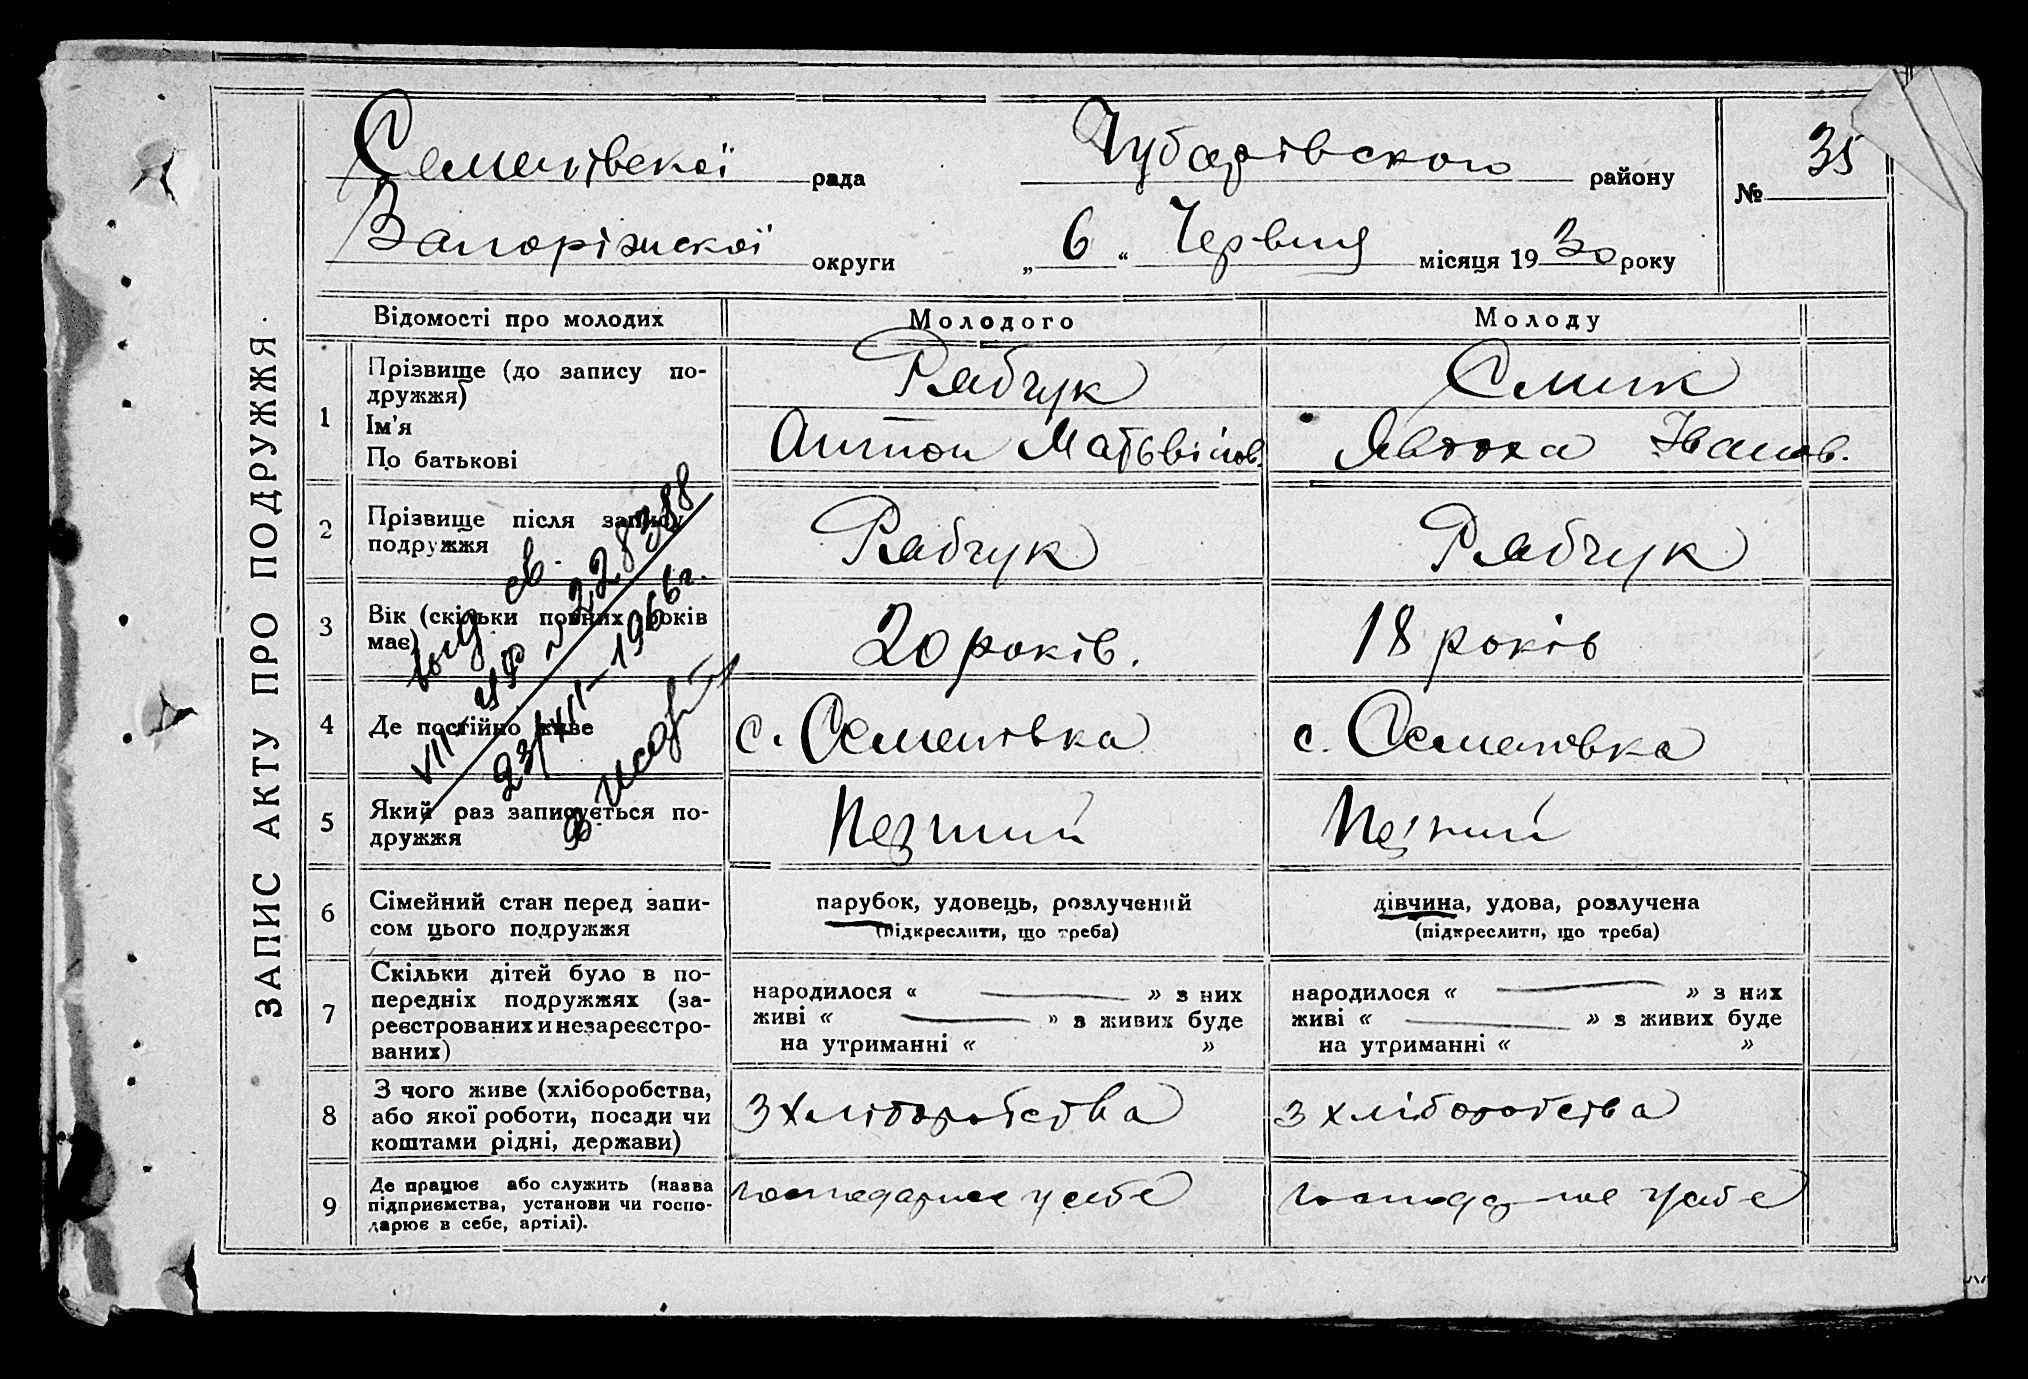 ЗАПИС АКТУ ПРО ПОДРУЖЖЯ
Семенівскої рада Чубарівского району № 35
Запоріжскої округи „ 6 “ Червня місяця 1930 року
Відомості про молодих Молодого Молоду
1 Прізвище (до запису по-
дружжя) Рябчук Смик
Ім'я
По батькові Антон Матьвійов. Явдоха Іванов.
2 Прізвище після запису
подружжя Рябчук Рябчук
3 Вік (скільки повних років
має) 20 років. 18 років
4 Де постійно живе с. Семеновка с. Семеновка
5 Який раз записується по-
дружжя Перший Перший
6 Сімейний стан перед запи-
сом цього подружжя
парубок, удовець, розлучений
(підкреслити, що треба)
дівчина, удова, розлучена
(підкреслити, що треба)
7 Скільки дітей було в по-
передніх подружжях (за-
реєстрованих и незареєстро-
ваних)
народилося « » з них
живі « » з живих буде
на утриманні « »
народилося « » з них
живі « » з живих буде
на утриманні « »
8 З чого живе (хліборобства,
або якої роботи, посади чи
коштами рідні, держави)
з хліборобства з хліборобства
9 Де працює або служить (назва
підприємства, установи чи госпо-
дарює в себе, артілі).
господарює у себе господарює у себе
выд. св.
VIII-ЯР № 228388
23/XII-1966г.